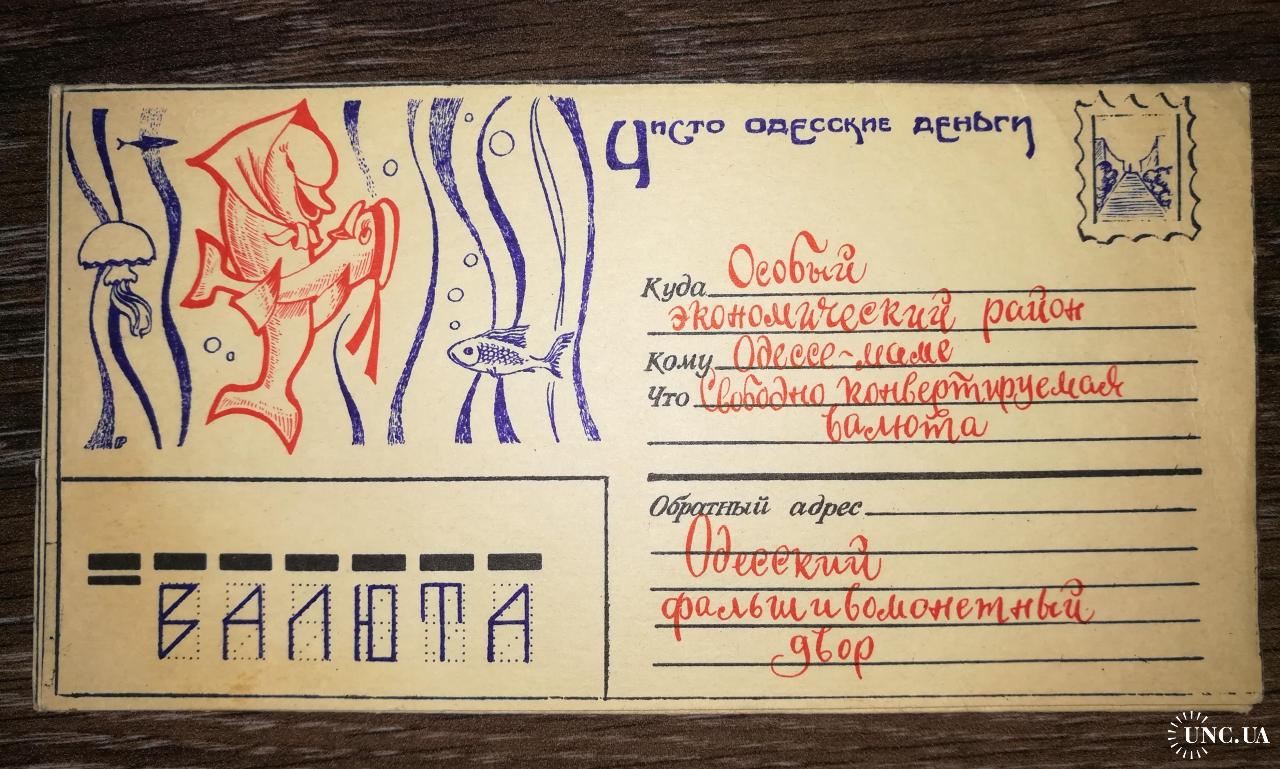 Чисто одесские деньги
Куда Особый
экономический район
Кому Одессе-маме
Что Свободно конвертируемая
валюта
Обратный адрес
Одесский
фальшивомонетный
двор
ВАЛЮТА
UNC.UA